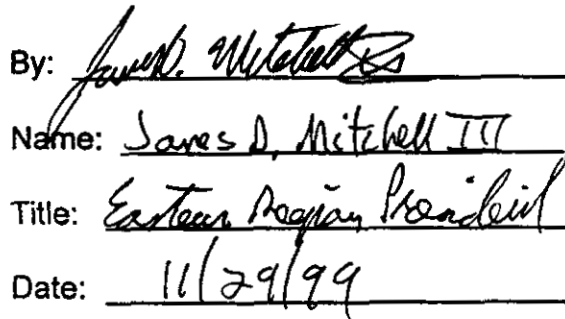 By: James D. Mitchell
Name: James D. Mitchell III
Title: Eastern Region President
Date: 11/29/99